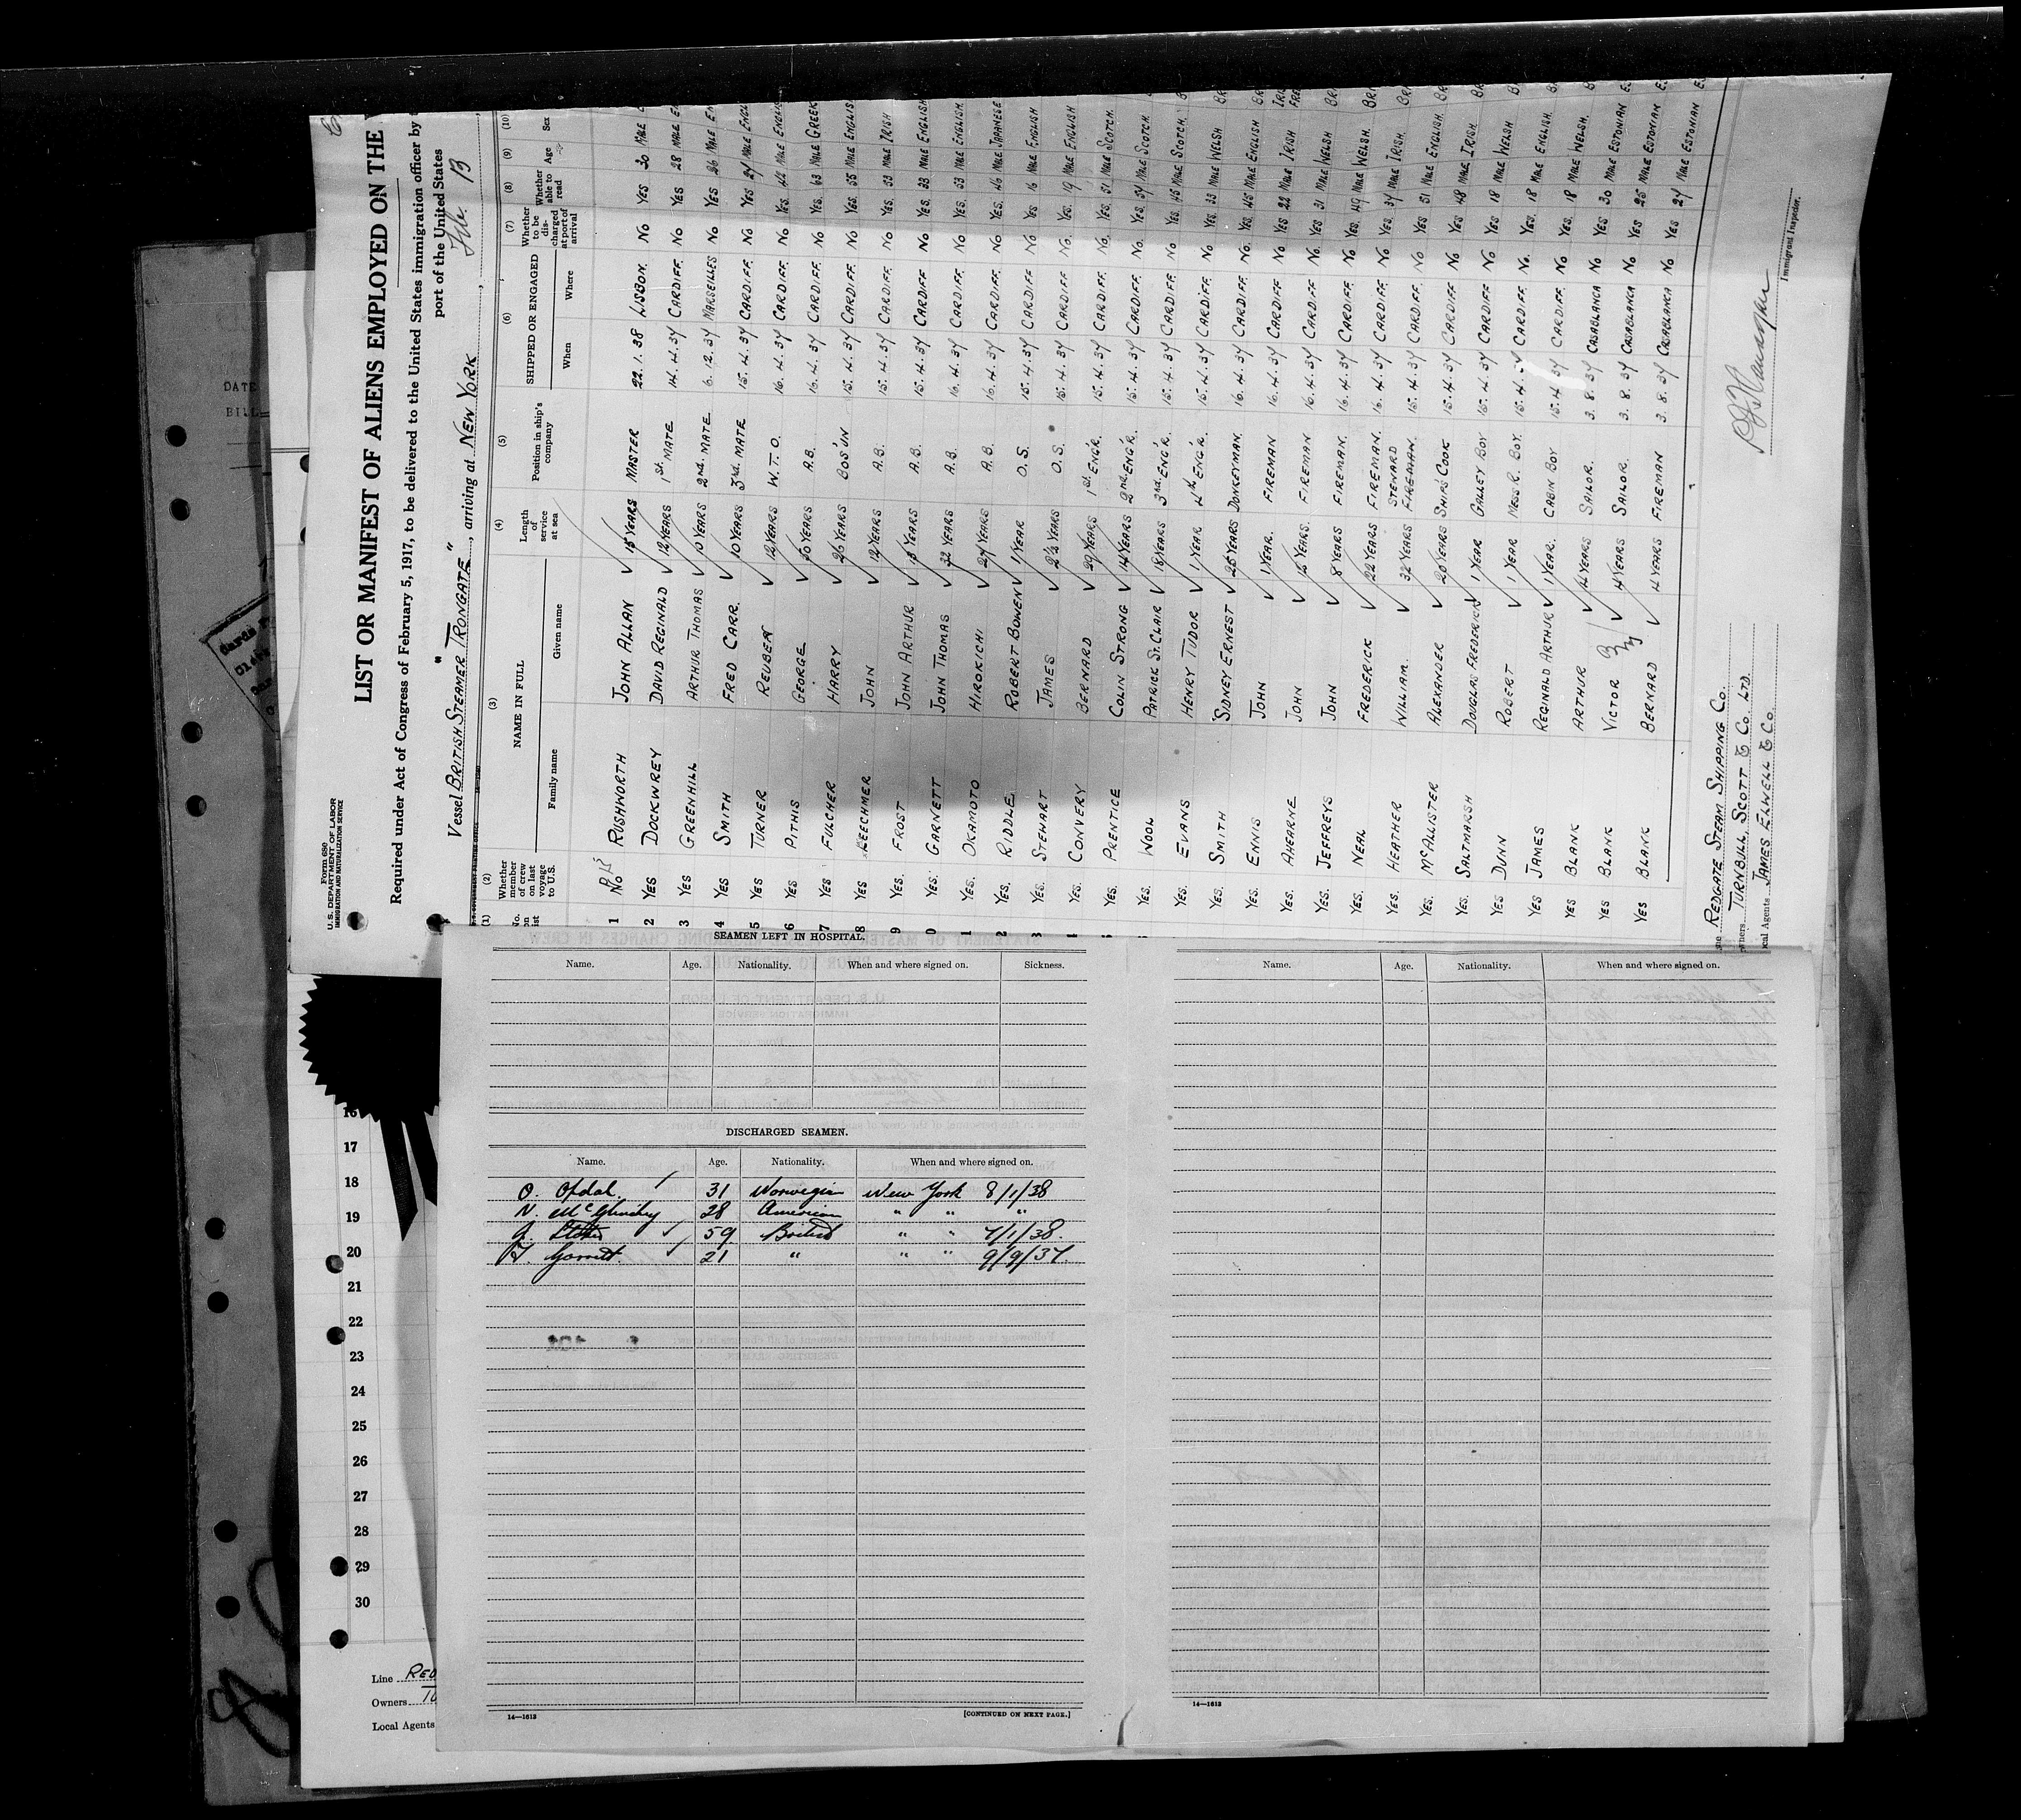 Form 680
U.S. DEPARTMENT OF LABOR
IMMIGRATION AND NATURALIZATION SERVICE
LIST OR MANIFEST OF ALIENS EMPLOYED ON THE
Required under Act of Congress of February 5, 1917, to be delivered to the United States immigration officer by
port of the United States
Vessel BRITISH STEAMER "TRONGATE", arriving at NEW YORK, Feb. 13
(1) (2) (3) (4) (5) (6) (7) (8) (9) (10)
Whether member of crew on last voyage to U.S. NAME IN FULL Length of service at sea Position in ship's company SHIPPED OR ENGAGED Whether to be discharged at port of arrival Whether able to read Age Sex
Family name Given name When Where
1 No RUSHWORTH JOHN ALLAN 15 YEARS MASTER 22.1.38 LISBON. No YES 30 MALE
2 YES DOCKWREY DAVID REGINALD 12 YEARS 1st MATE 14.4.37 CARDIFF. No YES 28 MALE
3 YES GREENHILL ARTHUR THOMAS 10 YEARS 2nd. MATE 6.12.37 MARSEILLES No YES 26 MALE
4 YES SMITH FRED CARR. 10 YEARS 3rd MATE 15.4.37 CARDIFF. No YES 27 MALE
5 YES TURNER REUBEN 12 YEARS W.T.O. 16.4.37 CARDIFF. No YES. 42 MALE
6 YES PITHIS GEORGE 50 YEARS A.B. 16.4.37 CARDIFF. No YES. 63 MALE GREEK
7 YES FULCHER HARRY 26 YEARS BOS'UN 15.4.37 CARDIFF. No YES. 55 MALE ENGLISH
8 YES KEECHMER JOHN 12 YEARS A.B. 15.4.37 CARDIFF. No YES. 33 MALE IRISH
9 YES. FROST JOHN ARTHUR 13 YEARS A.B. 15.4.37 CARDIFF No YES. 33 MALE ENGLISH
0 YES. GARNETT JOHN THOMAS 32 YEARS A.B. 16.4.37 CARDIFF. No YES. 53 MALE ENGLISH.
1 YES. OKAMOTO HIROKICHI 27 YEARS A.B. 16.4.37 CARDIFF. No YES. 46 MALE JAPANESE
2 YES. RIDDLE ROBERT BOWEN 1 YEAR O.S. 15.4.37 CARDIFF No YES 16 MALE ENGLISH
3 YES. STEWART JAMES 2½ YEARS O.S. 15.4.37 CARDIFF No. YES. 19 MALE ENGLISH
YES. CONVERY BERNARD 29 YEARS 1st. ENG'R. 15.4.37 CARDIFF. No. YES. 51 MALE SCOTCH.
YES. PRENTICE COLIN STRONG 14 YEARS 2nd ENG'R. 15.4.37 CARDIFF. No. YES. 37 MALE SCOTCH.
YES. WOOL PATRICK ST. CLAIR 18 YEARS 3rd. ENG'R. 15.4.37 CARDIFF. No YES. 45 MALE SCOTCH.
YES. EVANS HENRY TUDOR 1 YEAR 4th ENG'R. 15.4.37 CARDIFF. No YES. 33 MALE WELSH
YES. SMITH SIDNEY ERNEST 25 YEARS DONKEYMAN. 16.4.37 CARDIFF No. YES. 45 MALE ENGLISH
YES. ENNIS JOHN 1 YEAR. FIREMAN 16.4.37 CARDIFF No YES 22 MALE IRISH
YES. AHEARNE JOHN 12 YEARS. FIREMAN 16.4.37 CARDIFF No. YES 31 MALE WELSH
YES. JEFFREYS JOHN 8 YEARS FIREMAN. 16.4.37 CARDIFF. No YES. 49 MALE WELSH.
YES. NEAL FREDERICK 22 YEARS FIREMAN. 16.4.37 CARDIFF. No YES. 37 MALE IRISH.
YES. HEATHER WILLIAM. 32 YEARS STEWARD FIREMAN. 15.4.37 CARDIFF. No YES 51 MALE ENGLISH.
YES. MCALLISTER ALEXANDER 20 YEARS SHIP'S COOK 15.4.37 CARDIFF. No YES 48 MALE IRISH.
YES. SALTMARSH DOUGLAS FREDERICK 1 YEAR GALLEY BOY 15.4.37 CARDIFF No YES 18 MALE WELSH
YES DUNN ROBERT 1 YEAR MESS R. BOY. 15.4.37 CARDIFF. No. YES. 18 MALE ENGLISH.
YES JAMES REGINALD ARTHUR 1 YEAR. CABIN BOY 15.4.37 CARDIFF. No YES. 18 MALE WELSH.
YES BLANK ARTHUR 14 YEARS SAILOR. 3.8.37 CASABLANCA No YES 30 MALE ESTONIAN
YES BLANK VICTOR 4 YEARS SAILOR. 3.8.37 CASABLANCA No YES 25 MALE ESTONIAN
YES BLANK BERNARD 4 YEARS FIREMAN 3.8.37 CASABLANCA No YES 27 MALE ESTONIAN
REDGATE STEAM SHIPPING CO.
TURNBULL SCOTT & CO. LTD.
Local Agents JAMES ELWELL & CO.
Immigrant Inspector.
SEAMEN LEFT IN HOSPITAL.
Name. Age. Nationality. When and where signed on. Sickness.
DISCHARGED SEAMEN.
Name. Age. Nationality. When and where signed on.
O. Opdal. 31 Norwegian New York 8/1/38
28 American " " "
59 British " " 7/1/38.
H. Garnett. 21 " " " 9/9/37.
14—1613 [CONTINUED ON NEXT PAGE.]
Name. Age. Nationality. When and where signed on.
14—1613
16
17
18
19
20
21
22
23
24
25
26
27
28
29
30
Line RED
Owners TU
Local Agents